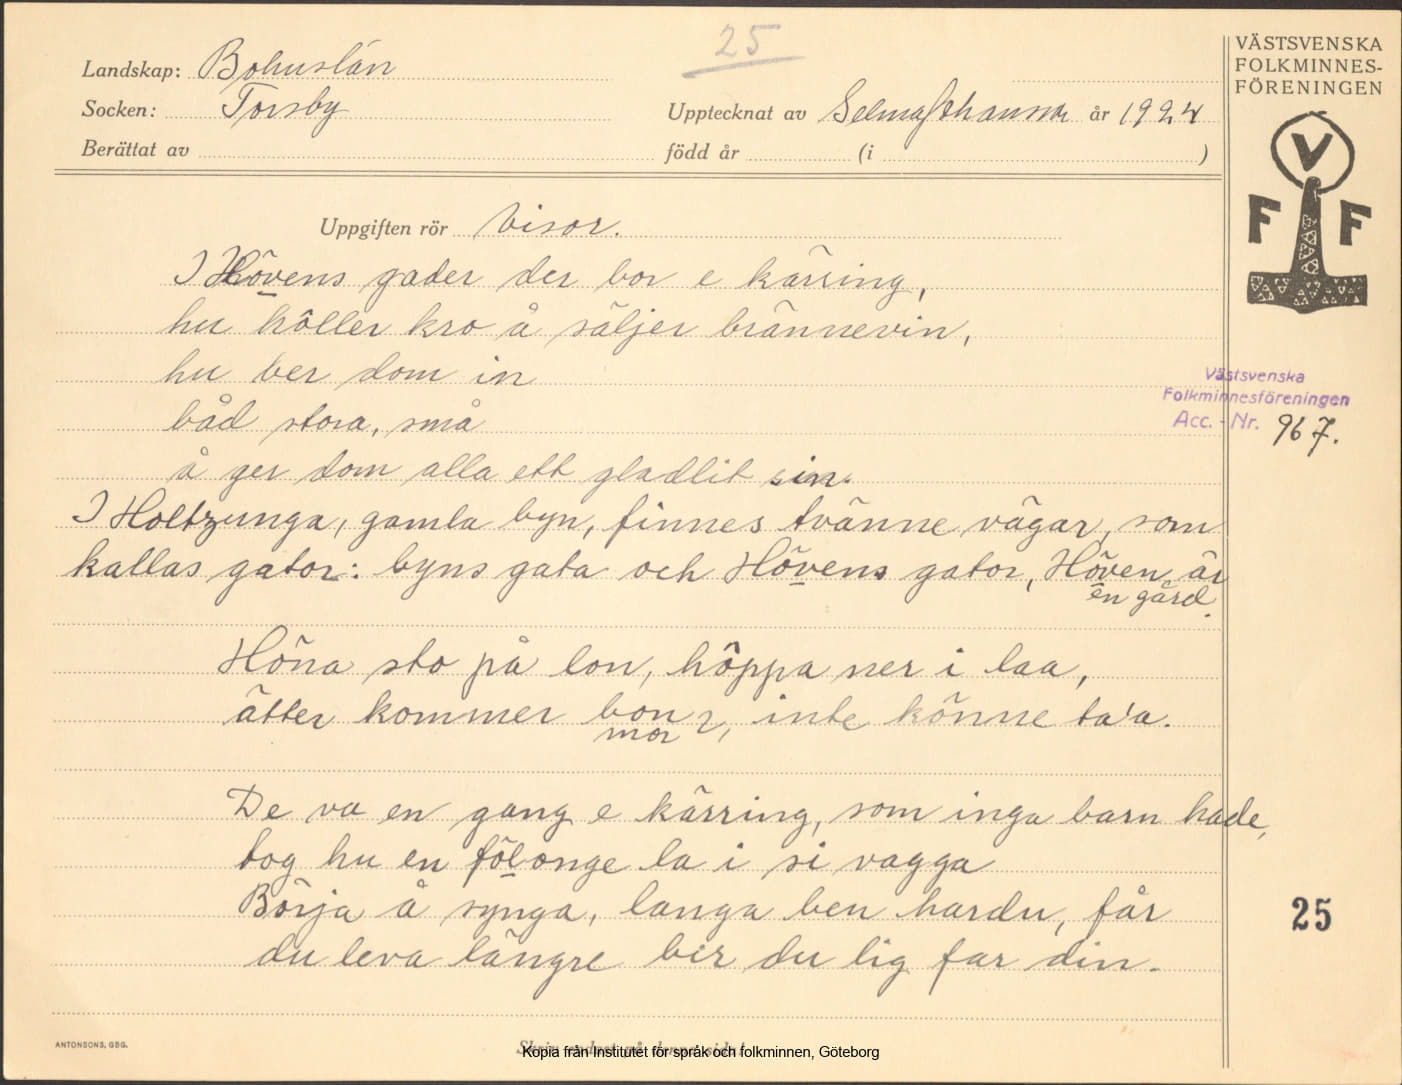 25
Landskap: Bohuslän
Socken: Torsby
Upptecknat av Selma Johansson år 1924
Berättat av
född år (i )
VÄSTSVENSKA
FOLKMINNES-
FÖRENINGEN
V
F F
Uppgiften rör Visor.
I Hövens gader der bor e kärring,
hu håller kro å säljer brännevin,
hu ber dom in
båd stora, små
å ger dom alla ett gladlit sin.
Västsvenska
Folkminnesföreningen
Acc. - Nr. 967.
I Holtzunga, gamla byn, finnes tvänne vägar, som
kallas gator: byns gata och Hövens gator, Höven är
en gård.
Höna sto på lon, höppa ner i laa,
ätter kommer bonn, inte könne ta'a.
mor
De va en gang e kärring, som inga barn hade,
tog hu en fölonge la i si vagga
Börja å synga, langa ben hardu, får
du leva längre ber du lig far din.
25
ANTONSONS, GBG.
Skriv endast på denna sida!
Kopia från Institutet för språk och folkminnen, Göteborg